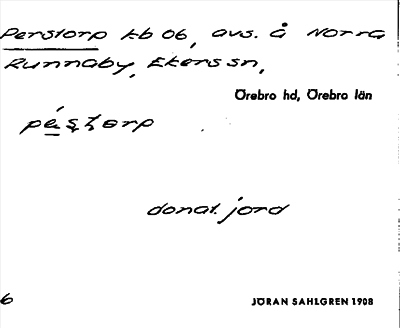 Perstorp kb 06, avs. å Norra
Runnaby, Ekers sn,
Örebro hd, Örebro län
pé̱ṣṭorp
donat. jord
6
JÖRAN SAHLGREN 1908